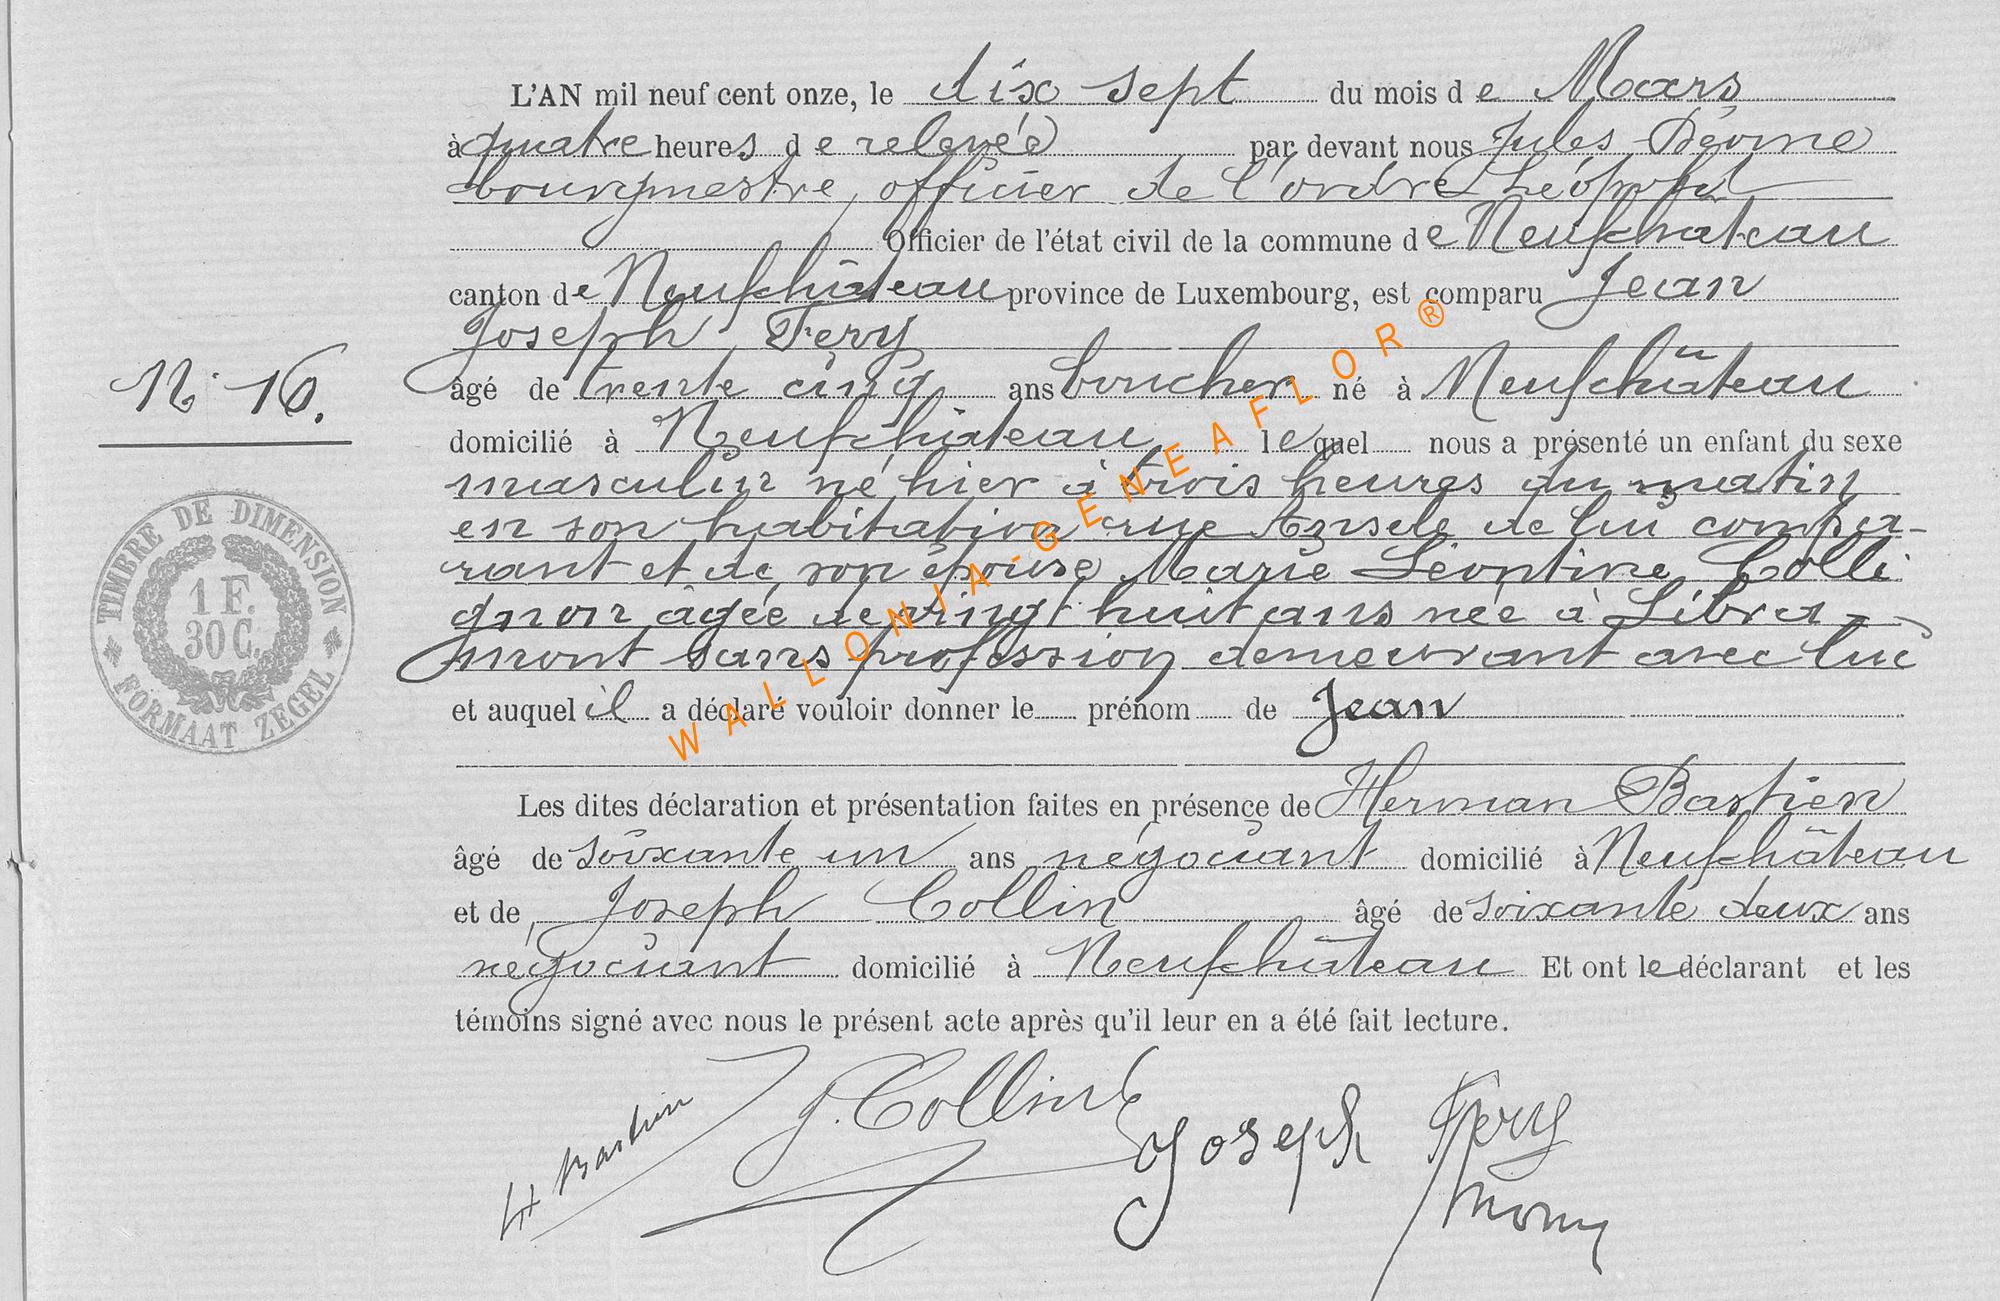 L'AN mil neuf cent onze, le dix sept du mois de Mars
à quatre heures de relevée par devant nous Jules
bourgmestre, officier de l'ordre Léopold
Officier de l'état civil de la commune de Neufchateau
canton de Neufchâteau province de Luxembourg, est comparu Jean
Joseph Fery
N° 16.
âgé de trente cinq ans boucher né à Neufchâteau
domicilié à Neufchâteau lequel nous a présenté un enfant du sexe
masculin né hier à trois heures du matin
en son habitation rue de lui compa-
rant et de son épouse Marie Léontine Colli
gnon âgée de vingt huit ans née à Libra-
mont sans profession demeurant avec lui
et auquel il a déclaré vouloir donner le prénom de Jean
Les dites déclaration et présentation faites en présence de Herman Bastien
âgé de soixante un ans négociant domicilié à Neufchâteau
et de Joseph Collin âgé de soixante deux ans
négociant domicilié à Neufchâteau Et ont le déclarant et les
témoins signé avec nous le présent acte après qu'il leur en a été fait lecture.
H Bastien J. Collin Joseph Fery
TIMBRE DE DIMENSION
1 F.
30 C.
FORMAAT ZEGEL
WALLONIA-GENEAFLOR®